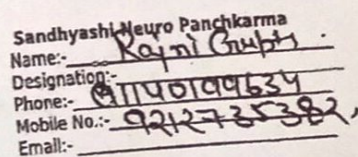 Sandhyashi Neuro Panchkarma
Name:- Rajni Gupta
Designation:-
Phone:- 01140199634
Mobile No.:- 9212735382,
Email:-